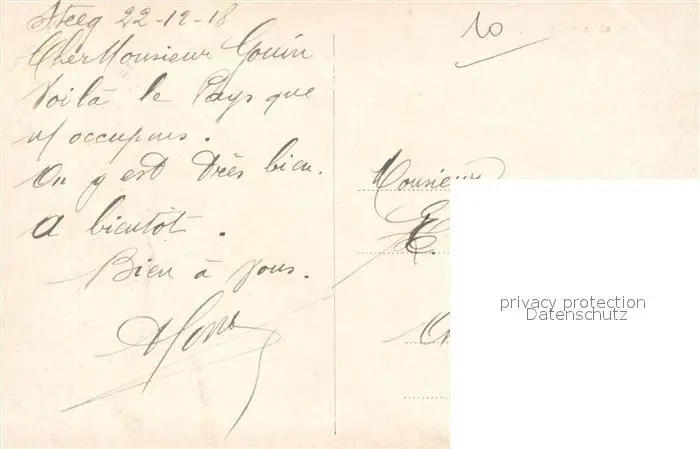 Steeg 22-12-18
Cher Monsieur Gouin
Voilà le Pays que
n/ occupons.
On y est très bien.
A bientôt.
Bien à vous.
10
Monsieur
E.
privacy protection
Datenschutz